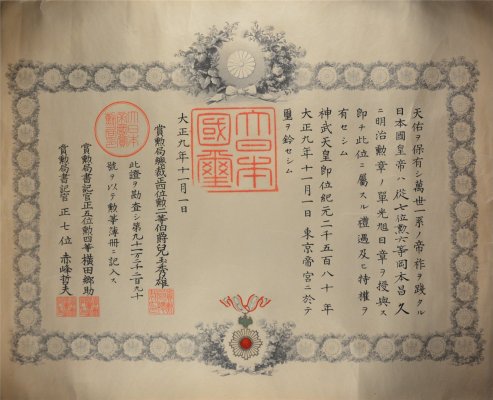 天佑ヲ保有シ萬世一系ノ帝祚ヲ踐タル
日本國皇帝ハ從七位勲六等岡本昌久
ニ明治勲章ノ單光旭日章ヲ授與ス
即チ此位ニ屬スル禮遇及ヒ特權ヲ
有セシム
神武天皇即位紀元二千五百八十年
大正九年十一月一日東京帝宮ニ於テ
璽ヲ鈐セシム
大日本
國璽
大正九年十一月一日
賞勲局總裁正四位勲二等伯爵兒玉秀雄
此證ヲ勘査シ第九十一万二千二百九十
號ヲ以テ勲等簿冊ニ記入ス
賞勲局書記官正五位勲四等横田郷助
賞勲局書記官正七位赤峰哲夫